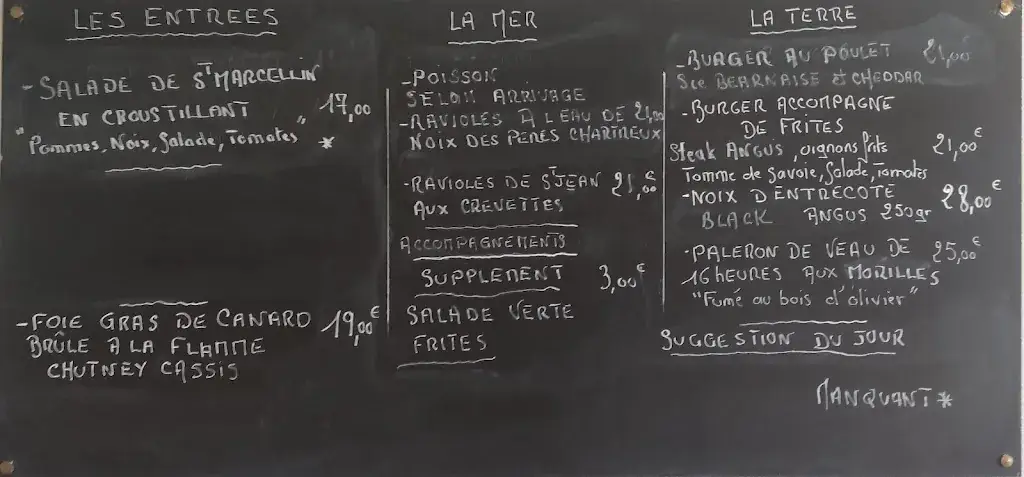 LES ENTREES
- SALADE DE ST MARCELLIN
EN CROUSTILLANT 17,00
"Pommes, Noix, Salade, Tomates" *
- FOIE GRAS DE CANARD 19,00€
BRÛLE A LA FLAMME
CHUTNEY CASSIS
LA MER
- POISSON
SELON ARRIVAGE
- RAVIOLES A L'EAU DE 21,00
NOIX DES PERES CHARTREUX
- RAVIOLES DE ST JEAN 21,00€
AUX CREVETTES
ACCOMPAGNEMENTS
SUPPLEMENT 3,00€
SALADE VERTE
FRITES
LA TERRE
- BURGER AU POULET 21,00
Sce BEARNAISE et CHEDDAR
- BURGER ACCOMPAGNE
DE FRITES
Steak ANGUS, oignons frits 21,00€
Tomme de Savoie, Salade, Tomates
- NOIX D'ENTRECOTE 28,00€
BLACK ANGUS 250gr
- PALERON DE VEAU DE 25,00€
16 HEURES AUX MORILLES
"Fumé au bois d'olivier"
SUGGESTION DU JOUR
MANQUANT *